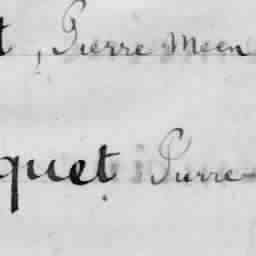 t, Pierre Meen
quet Pierre